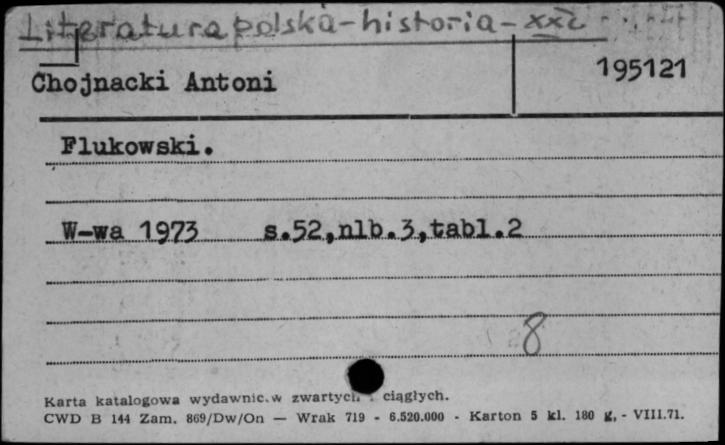 Literatura polska - historia - XX w
Chojnacki Antoni 195121
Flukowski.
W-wa 1973 s.52,nlb.3,tabl.2
8
Karta katalogowa wydawnic.w zwartych i ciągłych.
CWD B 144 Zam. 869/Dw/On — Wrak 719 - 6.520.000 - Karton 5 kl. 180 g, - VIII.71.